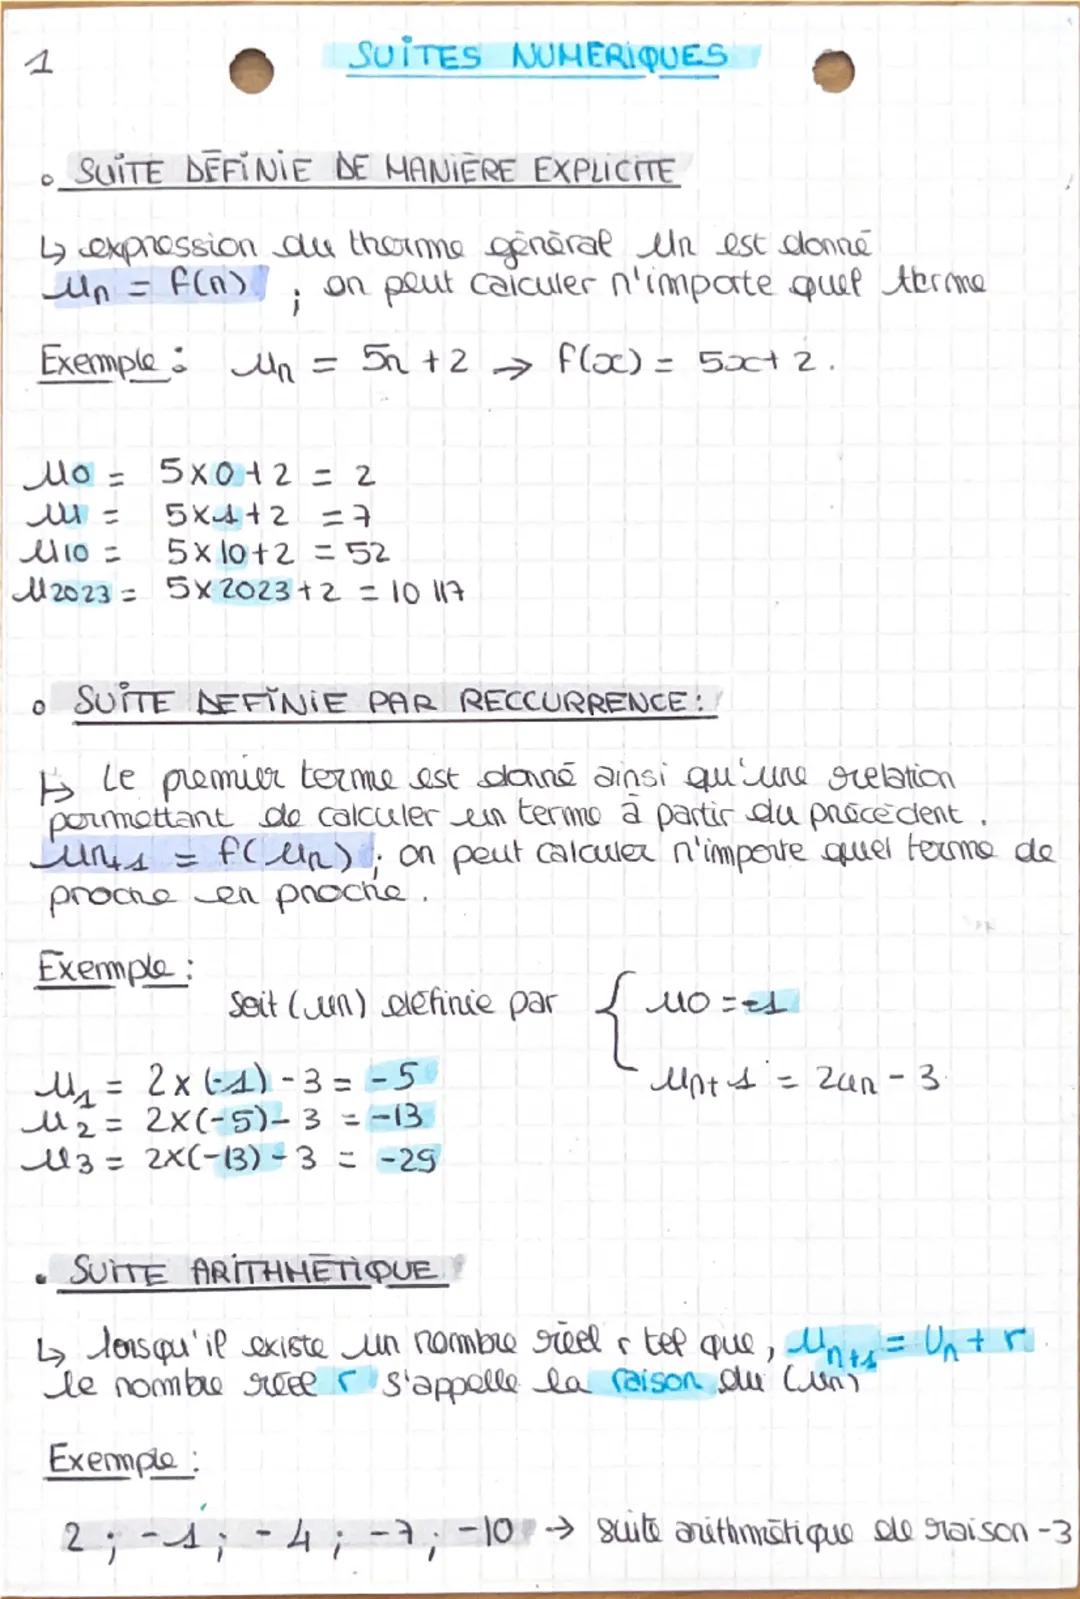 1
SUITES NUMERIQUES
• SUITE DÉFINIE DE MANIÈRE EXPLICITE
↳ expression du therme général Un est donné
Un = f(n) ; on peut calculer n'importe quel therme
Exemple : Un = 5n + 2 → f(x) = 5x + 2.
U0 = 5x0+2 = 2
U1 = 5x1+2 = 7
U10 = 5x10+2 = 52
U2023 = 5x2023+2 = 10 117
• SUITE DEFINIE PAR RECCURRENCE :
↳ Le premier terme est donné ainsi qu'une relation
permettant de calculer un terme à partir du précédent.
Un+1 = f(Un) ; on peut calculer n'importe quel terme de
proche en proche.
Exemple :
Soit (un) définie par { U0 = -1
Un+1 = 2un - 3
U1 = 2x(-1) - 3 = -5
U2 = 2x(-5) - 3 = -13
U3 = 2x(-13) - 3 = -29
• SUITE ARITHMÉTIQUE
↳ lorsqu'il existe un nombre réel r tel que, Un+1 = Un + r
le nombre réel r s'appelle la raison du (un)
Exemple :
2 ; -1 ; -4 ; -7 ; -10 → suite arithmétique de raison -3